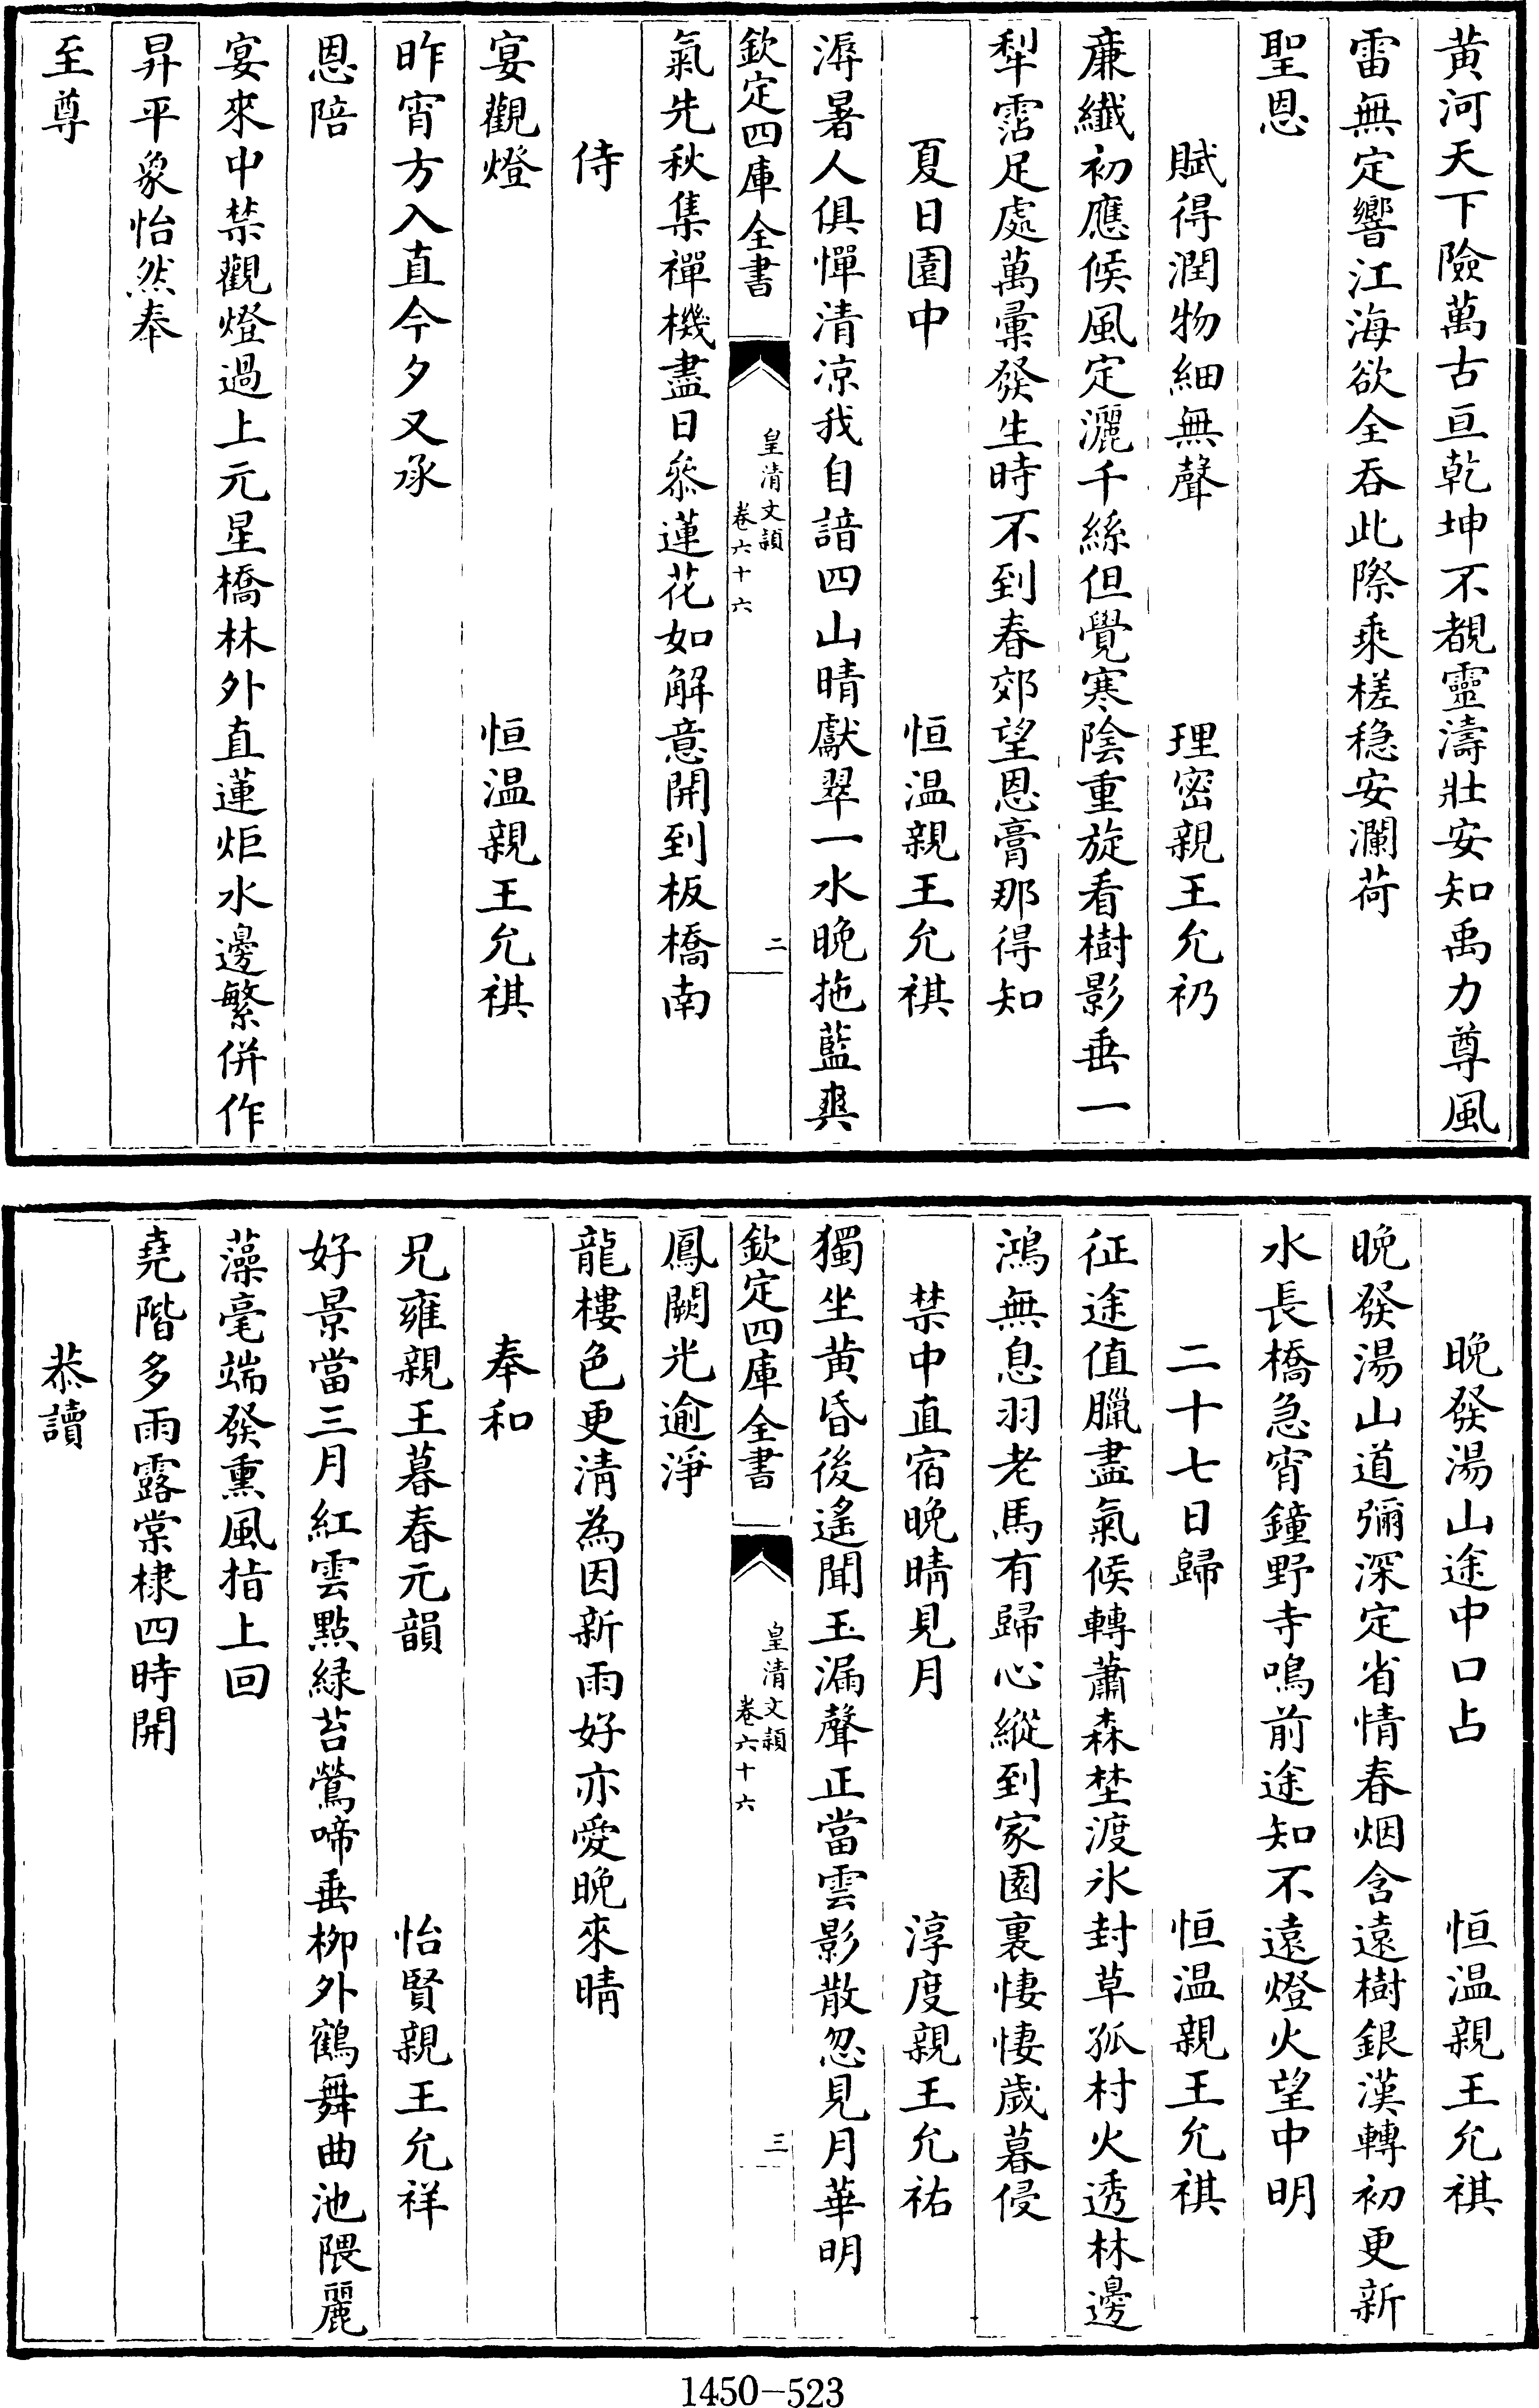 黄河天下險萬古亘乾坤不覩靈濤壯安知禹力尊風
雷無定響江海欲全吞此際乘槎穏安瀾荷
聖恩
賦得潤物細無聲 理密親王允礽
亷纖初應候風定灑千絲但覺寒陰重旋看樹影垂一
犂霑足處萬彚發生時不到春郊望恩膏那得知
夏日園中 恒温親王允祺
溽暑人俱憚清凉我自諳四山晴獻翠一水晩拖藍爽
欽定四庫全書 皇清文頴 卷六十六 二
氣先秋集禪機盡日叅蓮花如解意開到板橋南
侍
宴觀燈 恒温親王允祺
昨宵方入直今夕又承
恩陪
宴來中禁觀燈過上元星橋林外直蓮炬水邊繁併作
昇平象怡然奉
至尊
晩發湯山途中口占 恒温親王允祺
晩發湯山道彌深定省情春烟含遠樹銀漢轉初更新
水長橋急宵鐘野寺鳴前途知不遠燈火望中明
二十七日歸 恒温親王允祺
征途值臘盡氣候轉蕭森埜渡氷封草孤村火透林邊
鴻無息羽老馬有歸心縱到家園裏悽悽歲暮侵
禁中直宿晩晴見月 淳度親王允祐
獨坐黄昏後遙聞玉漏聲正當雲影散忽見月華明
欽定四庫全書 皇清文頴 卷六十六 三
鳳闕光逾淨
龍樓色更清為因新雨好亦愛晩來晴
奉和
兄雍親王暮春元韻 怡賢親王允祥
好景當三月紅雲點緑苔鶯啼垂柳外鶴舞曲池隈麗
藻毫端發熏風指上回
堯階多雨露棠棣四時開
恭讀
1450-523